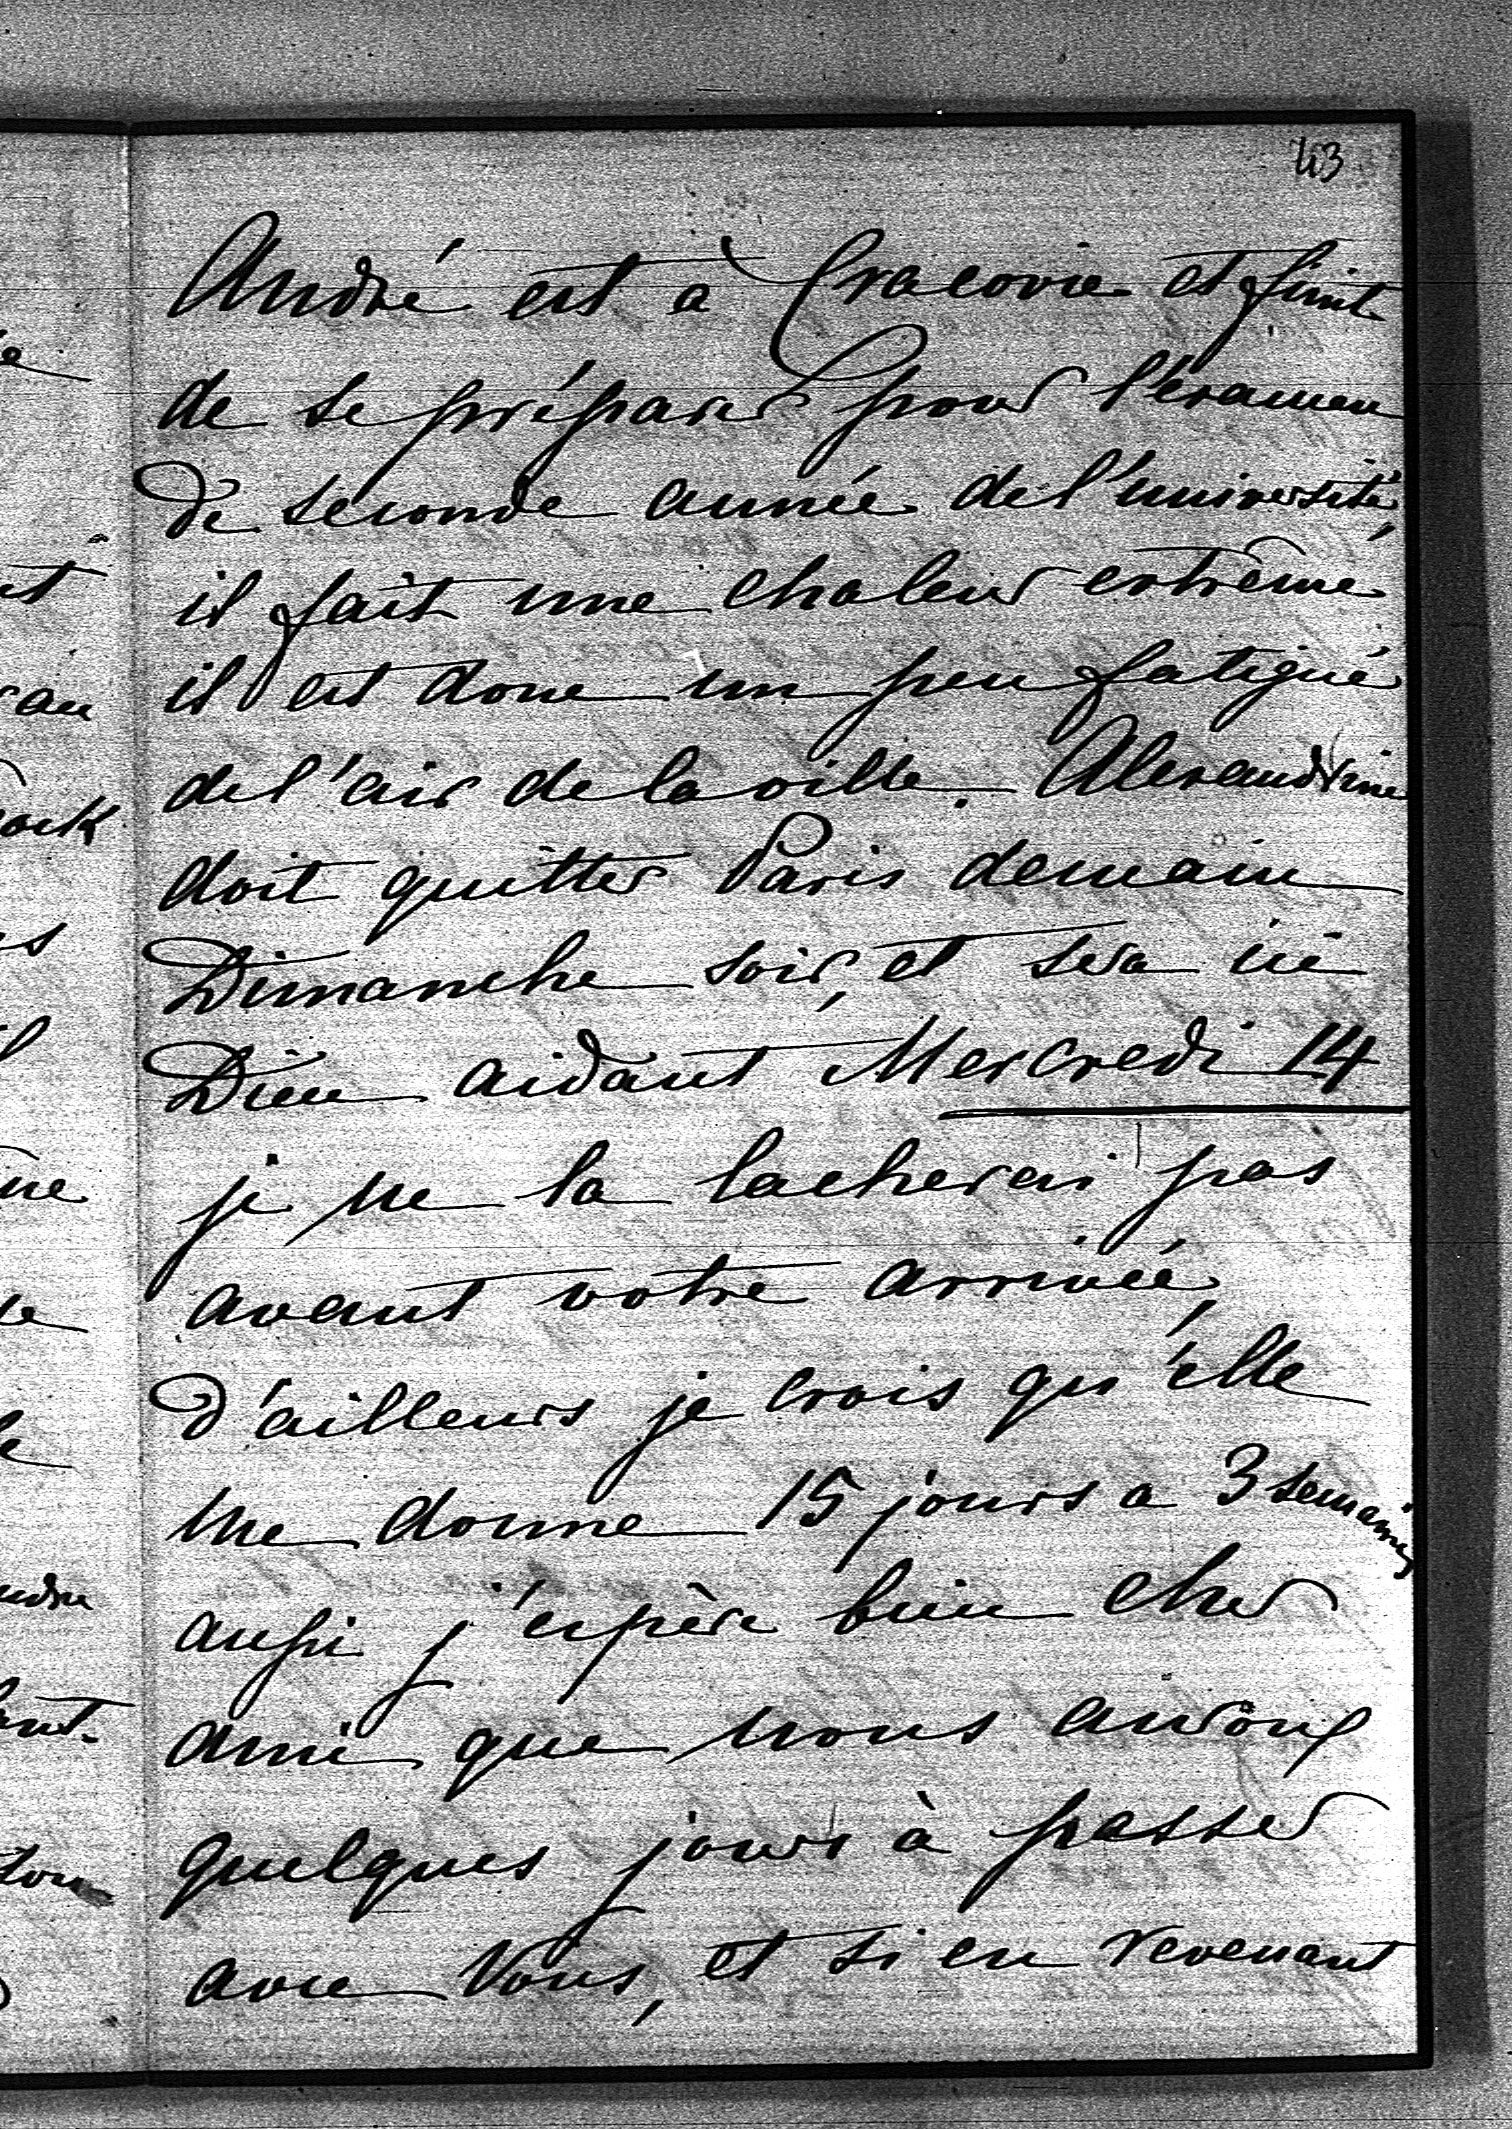 43
André est à Cracovie et finit
de se préparer pour l'examen
de seconde année de l'université,
il fait une chaleur extrême
il est donc un peu fatigué
de l'air de la ville. Alexandrine
doit quitter Paris demain
Dimanche soir, et sera ici
Dieu aidant Mercredi 14
je ne la lacherai pas
avant votre arrivée,
d'ailleurs je crois qu'elle
me donne 15 jours a 3 semaines
aussi j'espère bien cher
ami que nous aurons
quelques jours à passer
avec Vous, et si en revenant